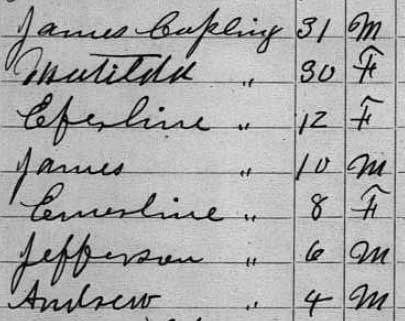 James Copling 31 M
Matilda " 30 F
Eferline " 12 F
James " 10 M
Emerline " 8 F
Jefferson " 6 M
Andrew " 4 M